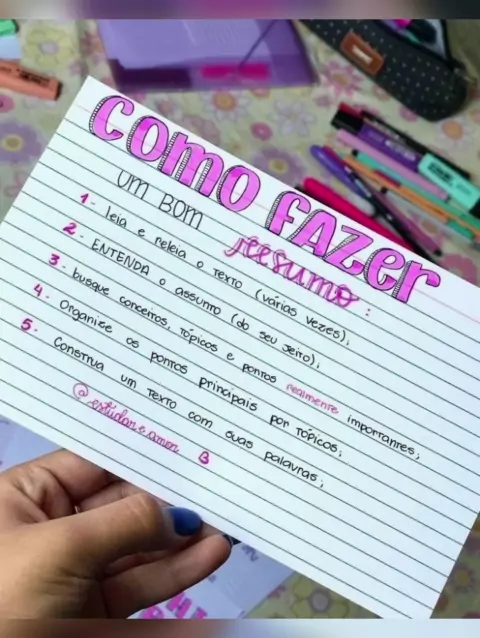 COMO FAZER
UM BOM resumo:
1- leia e releia o texto (várias vezes);
2- ENTENDA o assunto (do seu jeito);
3- busque conceitos, tópicos e pontos realmente importantes;
4- Organize os pontos principais por tópicos;
5- Construa um texto com suas palavras;
@estudar.e.amor B